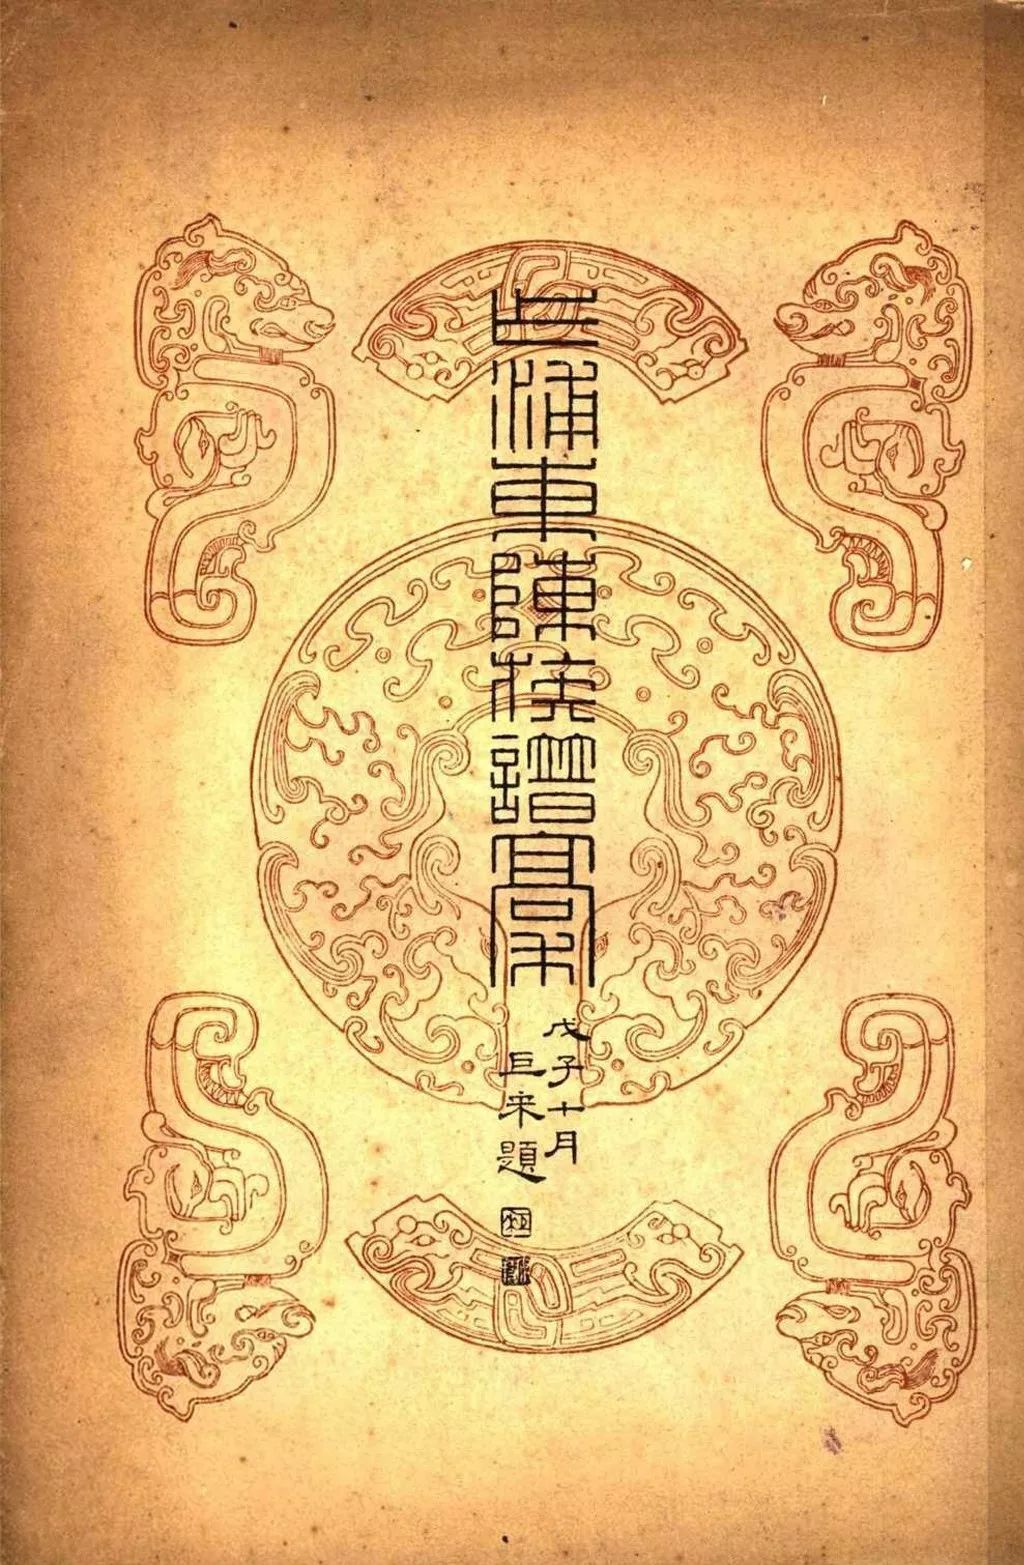 乍浦東陳族譜稾
戊子十月
巨来題